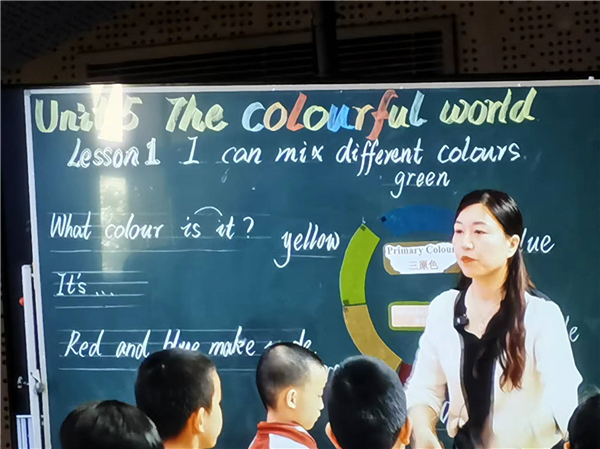 Unit 5 The colourful world
Lesson 1 I can mix different colours
green
What colour is it?
yellow
Primary Colour
三原色
It's ...
Red and blue make